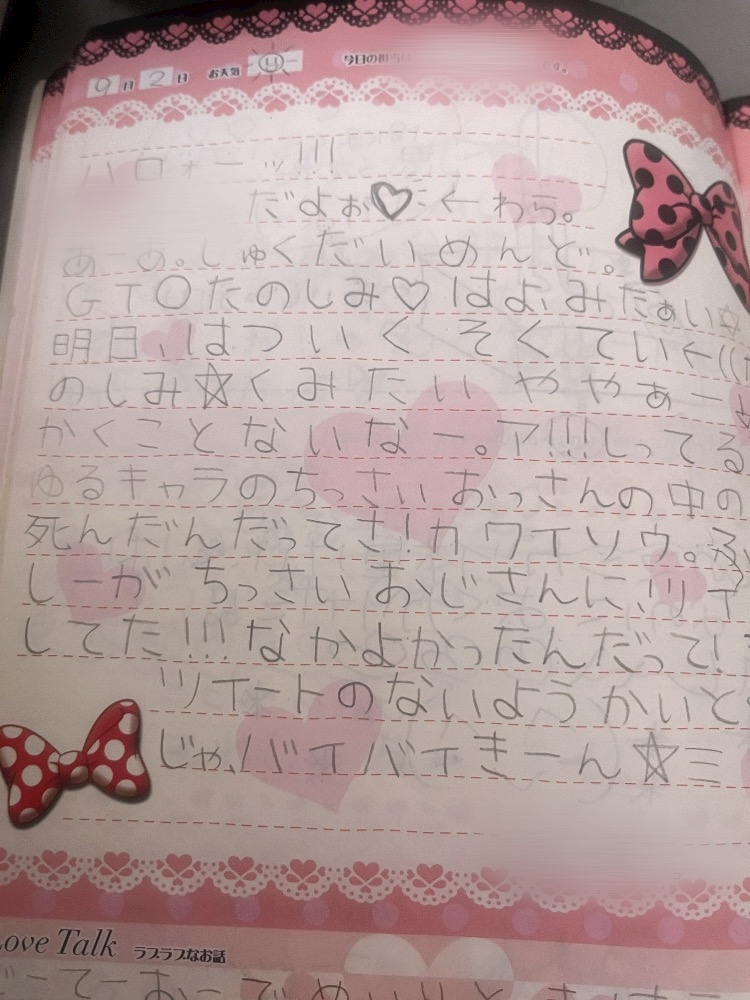 9月2日 お天気 今日の担当は
ハロォーッ!!!
だよぉ♡ ← わら。
あーあ。しゅくだいめんど。
GTOたのしみ♡はよ、みたぁい☆
明日、はついくそくてい←((
のしみ☆くみたいややぁー
かくことないなー。ア!!!しってる
ゆるキャラのちっさいおっさんの中の
死んだんだってさ!カワイソウ。ふ
しーがちっさいおじさんに、ツイ
してた!!!なかよかったんだって!
ツイートのないようかいと
じゃ、バイバイきーん☆三
Love Talk ラブラブなお話